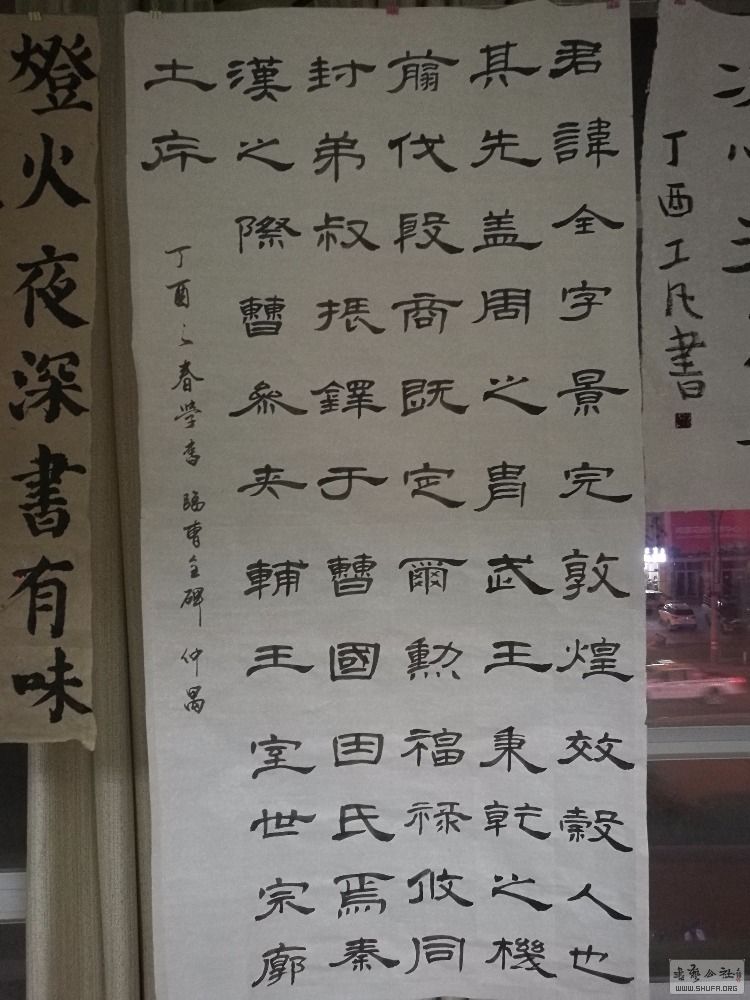 丁酉工凡書
君諱全字景完敦煌效穀人也
其先盖周之胄武王秉乾之機
翦伐殷商既定爾勳福祿攸同
封弟叔振鐸于曹國因氏焉秦
漢之際曹參夾輔王室世宗廓
土斥
丁酉之春學書 臨曹全碑 仲
燈火夜深書有味
书艺公社
WWW.SHUFA.ORG